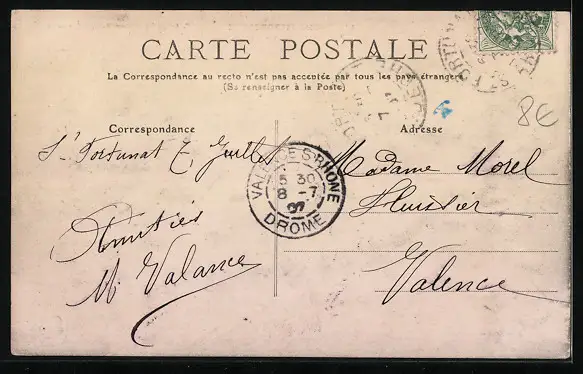 CARTE POSTALE
La Correspondance au recto n'est pas acceptée par tous les pays étrangers
(Se renseigner à la Poste)
8€
Correspondance
Adresse
St Fortunat
Amitiés
M. Valance
VALENCE S RHONE
5 30
8 - 7
DROME
Madame Morel
Huissier
Valence